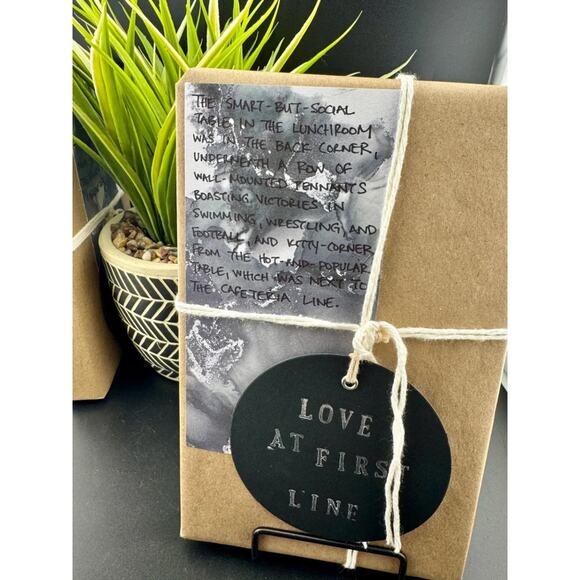 THE SMART-BUT-SOCIAL
TABLE IN THE LUNCHROOM
WAS IN THE BACK CORNER,
UNDERNEATH A ROW OF
WALL-MOUNTED TENNANTS
BOASTING VICTORIES IN
SWIMMING, WRESTLING, AND
FOOTBALL AND KITTY-CORNER
FROM THE HOT-AND-POPULAR
TABLE, WHICH WAS NEXT TO
THE CAFETERIA LINE.
LOVE
AT FIRST
LINE